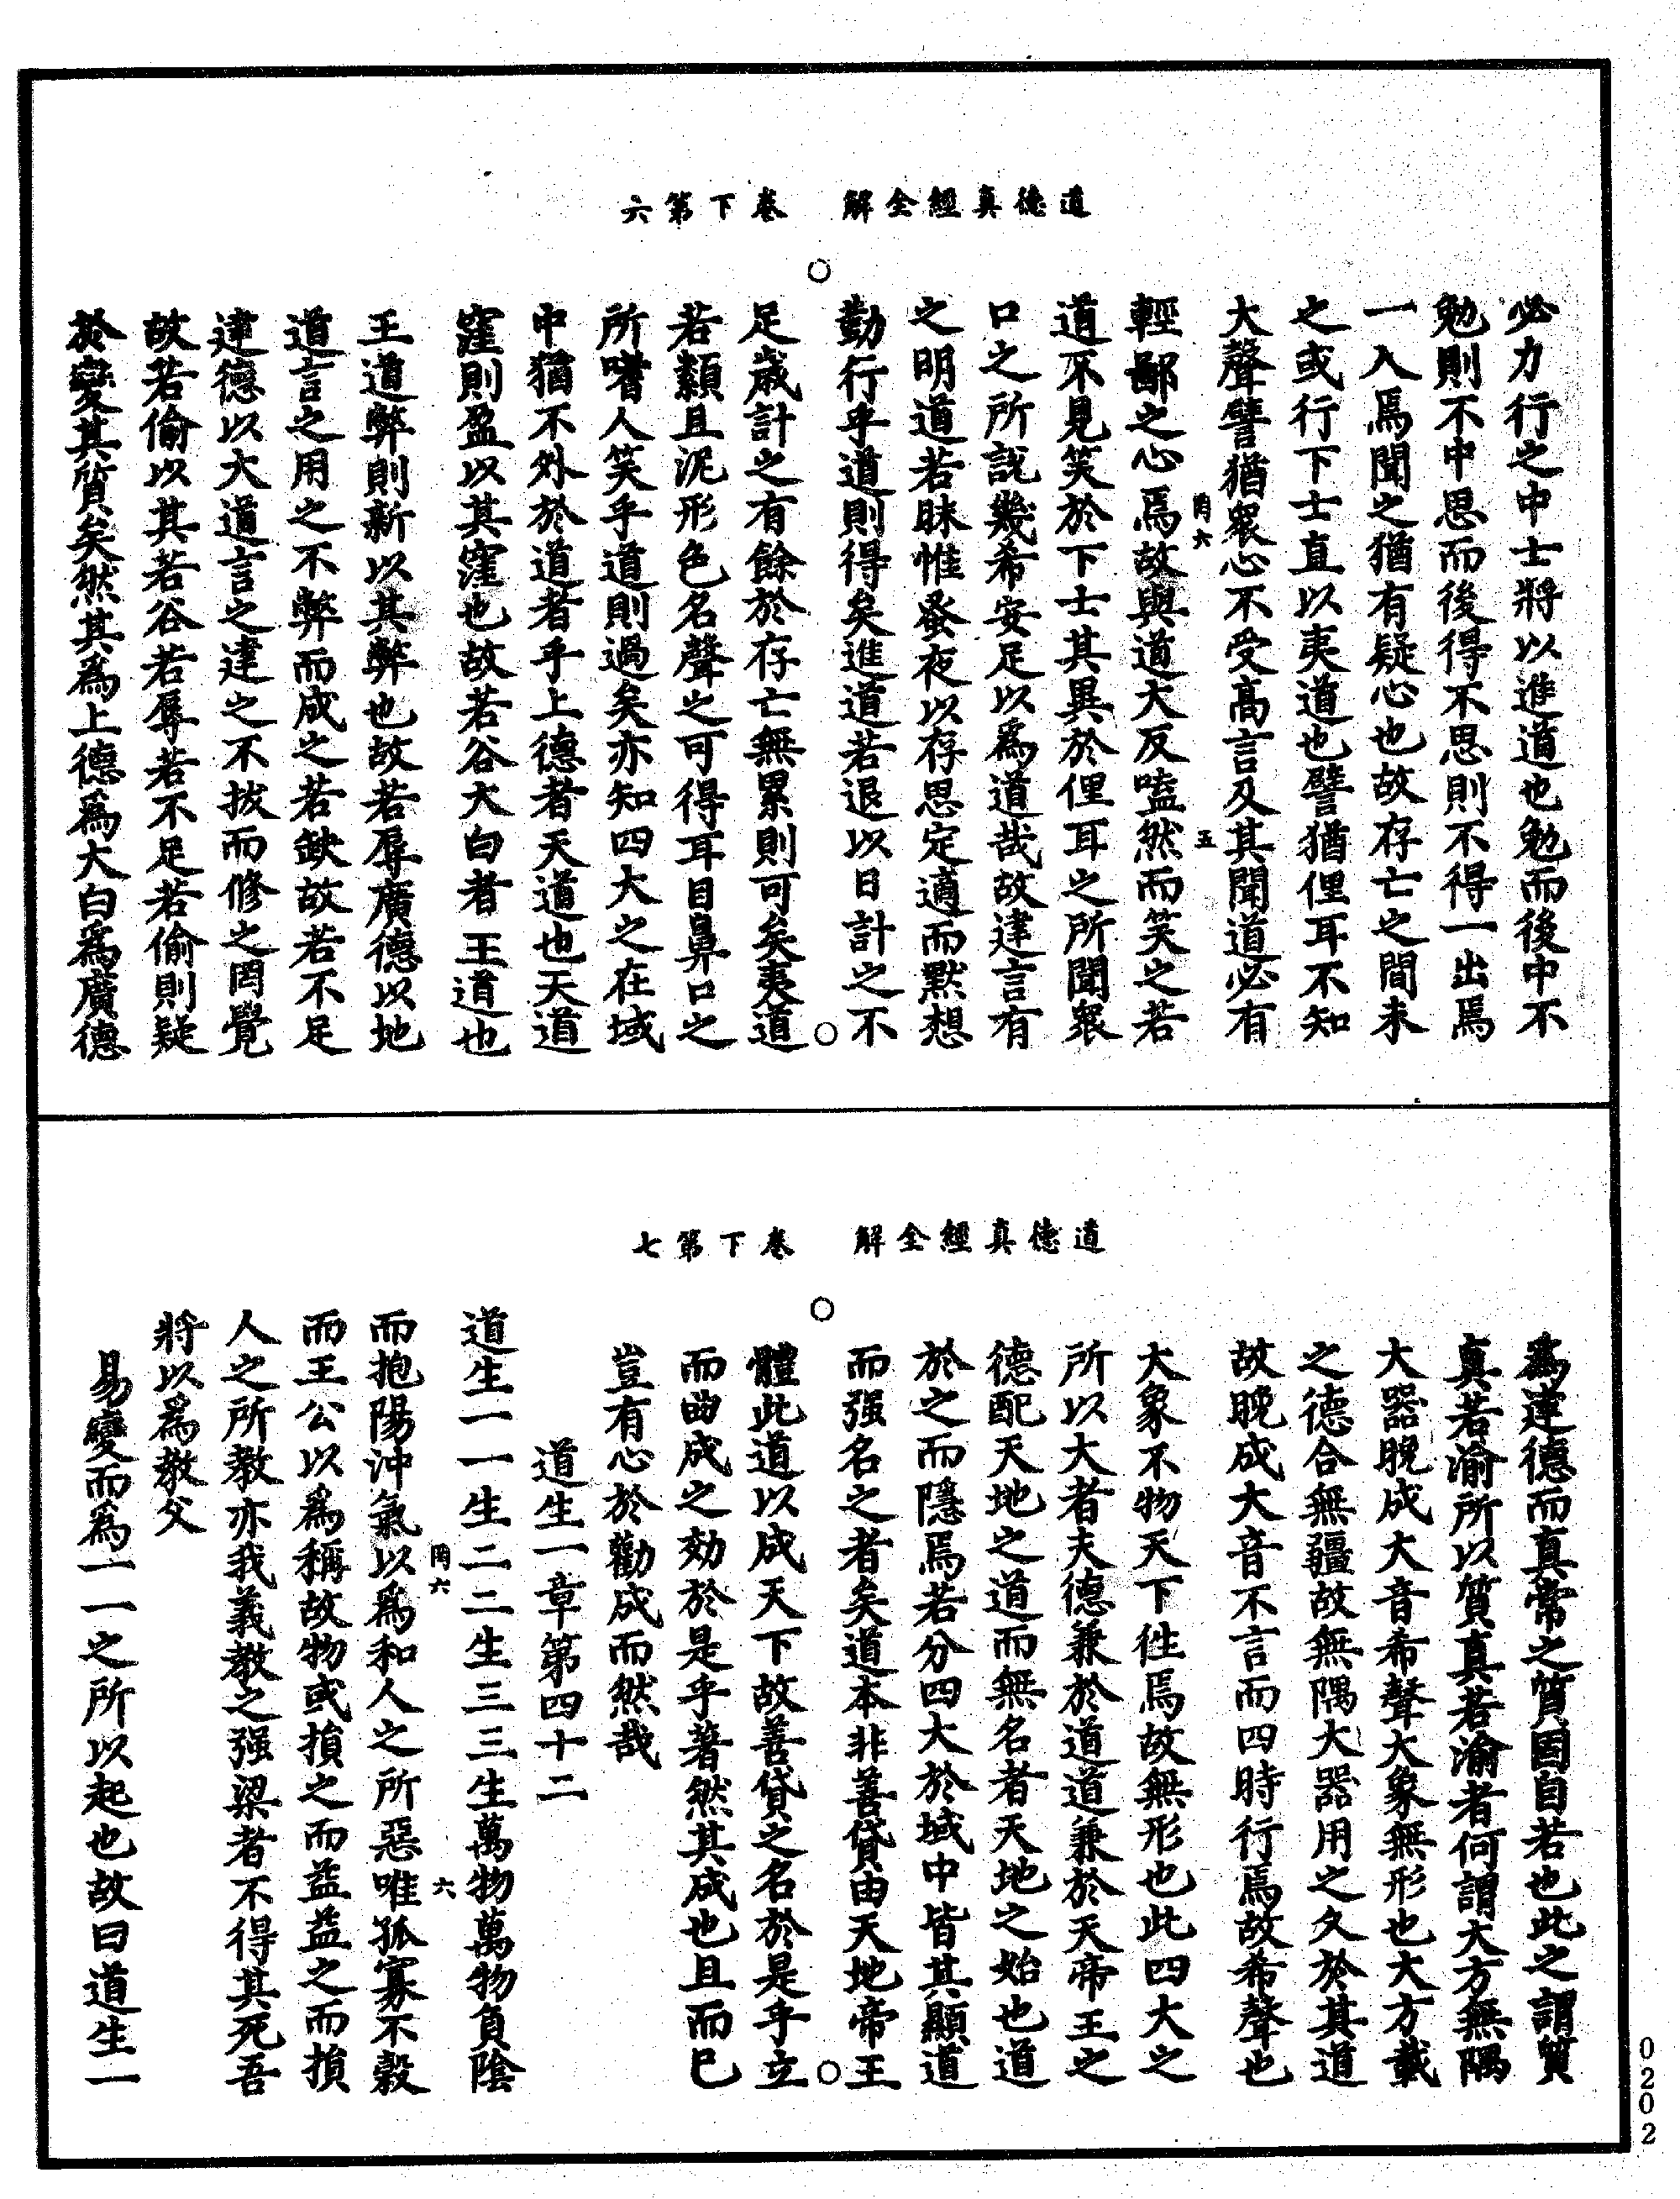 道德真經全解　卷下第六
必力行之中士將以進道也勉而後中不
勉則不中思而後得不思則不得一出焉
一入焉聞之猶有疑心也故存亡之間未
之或行下士直以夷道也譬猶俚耳不知
大聲譬猶衆心不受高言及其聞道必有
罔六　五
輕鄙之心焉故與道大反嗑然而笑之若
道不見笑於下士其異於俚耳之所聞衆
口之所説幾希安足以爲道哉故建言有
之明道若昧惟蚤夜以存思定適而默想
勤行乎道則得矣進道若退以日計之不
足歲計之有餘於存亡無累則可矣夷道
若纇且泥形色名聲之可得耳目鼻口之
所嗜人笑乎道則過矣亦知四大之在域
中猶不外於道者乎上德者天道也天道
窪則盈以其窪也故若谷大白者王道也
王道弊則新以其弊也故若辱廣德以地
道言之用之不弊而成之若缺故若不足
建德以大道言之建之不拔而修之罔覺
故若偷以其若谷若辱若不足若偷則疑
於變其質矣然其爲上德爲大白爲廣德
道德真經全解　卷下第七
爲建德而真常之質固自若也此之謂質
真若渝所以質真若渝者何謂大方無隅
大器晚成大音希聲大象無形也大方載
之德合無疆故無隅大器用之久於其道
故晚成大音不言而四時行焉故希聲也
大象不物天下徃焉故無形也此四大之
所以大者夫德兼於道道兼於天帝王之
德配天地之道而無名者天地之始也道
於之而隱焉若分四大於域中皆其顯道
而强名之者矣道本非善貸由天地帝王
體此道以成天下故善貸之名於是乎立
而曲成之効於是乎著然其成也且而已
豈有心於勸成而然哉
道生一章第四十二
道生一一生二二生三三生萬物萬物負陰
罔六　六
而抱陽沖氣以爲和人之所惡唯孤寡不穀
而王公以爲稱故物或損之而益益之而損
人之所教亦我義教之强梁者不得其死吾
將以爲教父
易變而爲一一之所以起也故曰道生一
0202